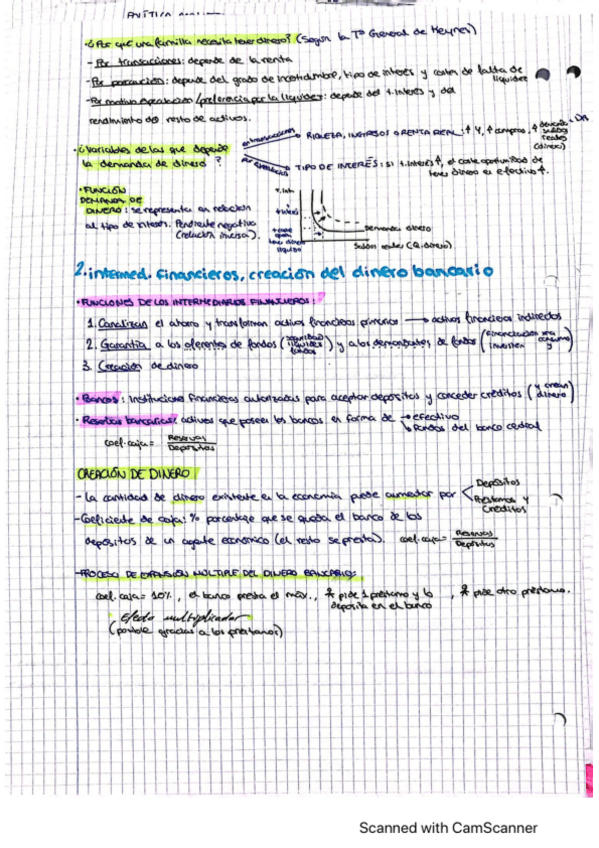 POLÍTICA
• ¿Por qué una familia necesita tener dinero? (según la Tª General de Keynes)
- Por transacciones: depende de la renta
- Por precaución: depende del grado de incertidumbre, tipo de interés y costes de falta de liquidez
- Por motivo especulación / preferencia por la liquidez: depende del t. interés y del
rendimiento del resto de activos.
• ¿Variables de las que depende
la demanda de dinero?
por transacciones
RIQUEZA, INGRESOS O RENTA REAL: ↑ Y, ↑ compras, ↑ demanda saldos reales (dinero)
por especulación
TIPO DE INTERÉS: si t. interés ↑, el coste oportunidad de
tener dinero en efectivo ↑.
• FUNCIÓN
DEMANDA DE
DINERO: se representa en relación
al tipo de interés. Pendiente negativa
(relación inversa).
T. int.
Demanda dinero
Saldos reales (Q. dinero)
2. intermed. financieros, creación del dinero bancario
• FUNCIONES DE LOS INTERMEDIARIOS FINANCIEROS:
1. Canalizan el ahorro y transforman activos financieros primarios → activos financieros indirectos
2. Garantía a los oferentes de fondos (seguridad liquidez fondos) y a los demandantes de fondos (financiación para consumo y inversión)
3. Creación de dinero
• Bancos: instituciones financieras autorizadas para aceptar depósitos y conceder créditos (y crean dinero)
• Reservas bancarias: activos que poseen los bancos en forma de → efectivo
↳ Fondos del banco central
coef. caja = Reservas / Depósitos
CREACIÓN DE DINERO
- La cantidad de dinero existente en la economía puede aumentar por < Depósitos
Préstamos y Créditos
- Coeficiente de caja: % porcentaje que se queda el banco de los
depósitos de un agente económico (el resto se presta). coef. caja = Reservas / Depósitos
- PROCESO DE EXPANSIÓN MÚLTIPLE DEL DINERO BANCARIO:
coef. caja = 10%, el banco presta el máx., pide 1 préstamo y lo deposita en el banco, pide otro préstamo.
Efecto multiplicador
(posible gracias a los préstamos)
Scanned with CamScanner